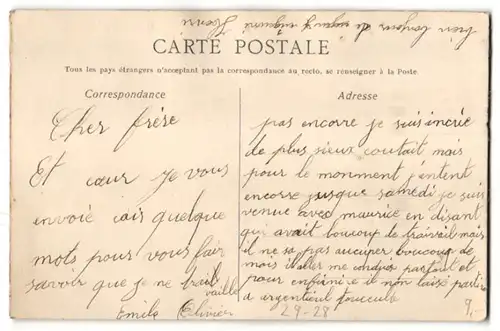 bien toujours de
CARTE POSTALE
Tous les pays étrangers n'acceptant pas la correspondance au recto, se renseigner à la Poste
Correspondance
Cher frére
Et cœur je vous
envoie cais quelque
mots pour vous fair
savoir que je ne trail
vaille
Emile Olivier
Adresse
pas encorre je suis incrie
de plus sieux coutait mais
pour le monment j'entent
encorre jusque samedi je suis
venue avec maurice en disant
qui avait boucoup de trairvail mais
il ne sa pas aucuper boucoup de
mais il aller me conduir partout et
pour enfinire il mon laisé partire
a argentieul
29-28
9.-